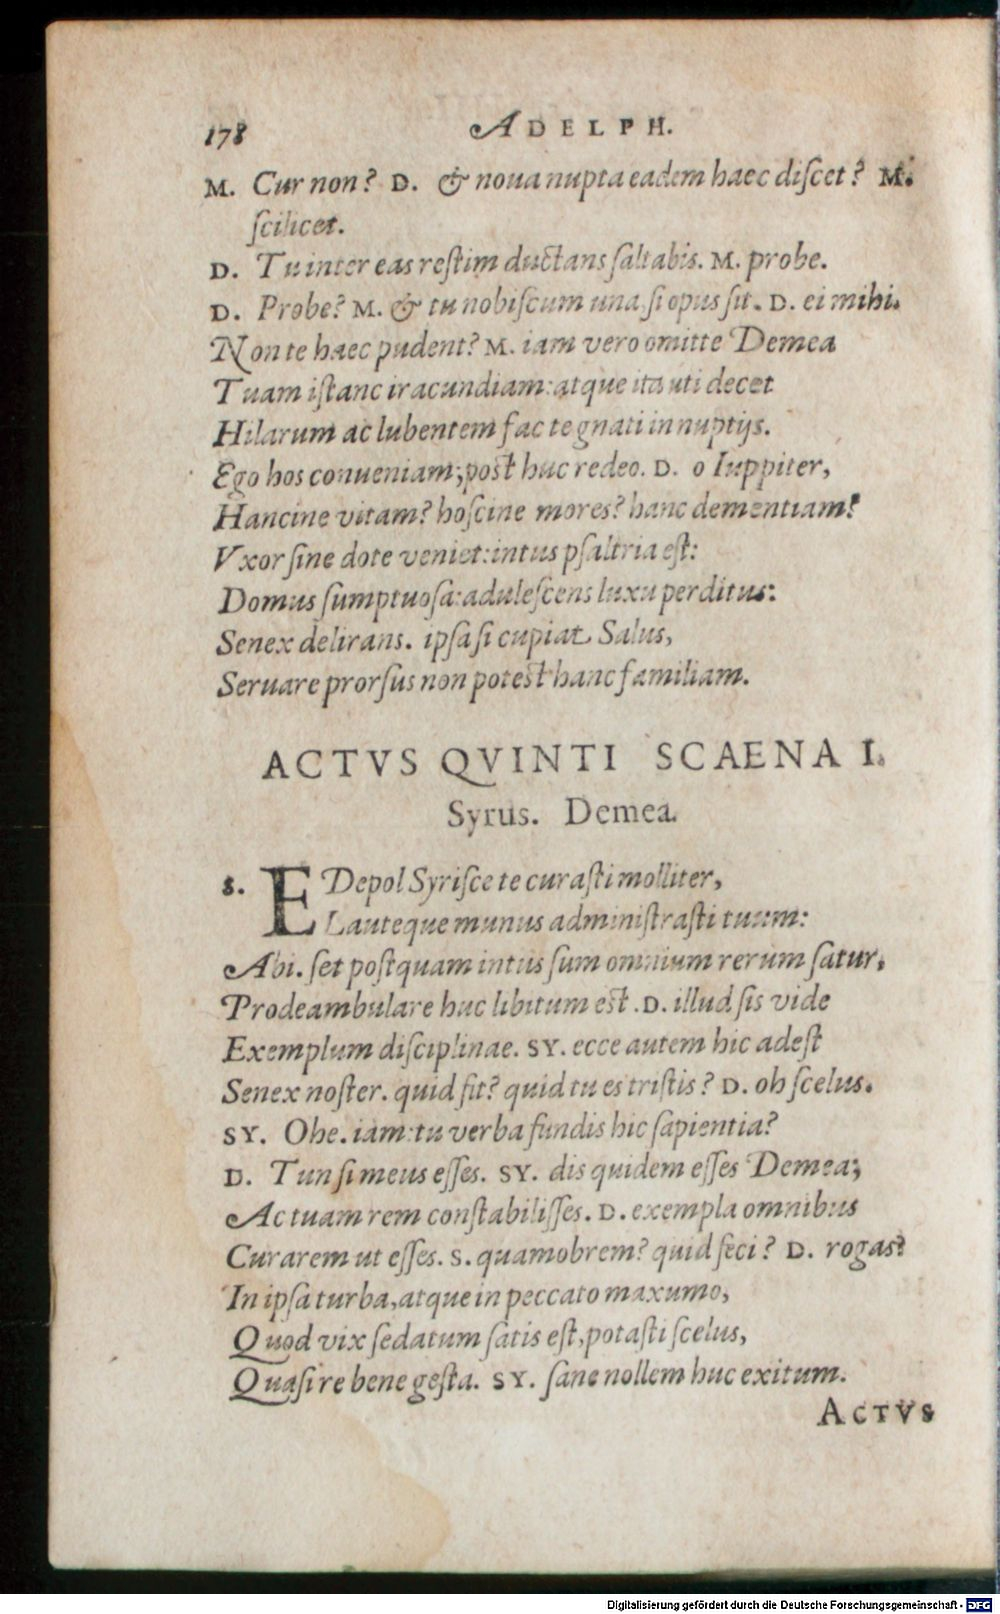 178 ADELPH.
M. Cur non? D. & noua nupta eadem haec discet? M.
scilicet.
D. Tu inter eas restim ductans saltabis. M. probe.
D. Probe? M. & tu nobiscum una, si opus sit. D. ei mihi.
Non te haec pudent? M. iam vero omitte Demea
Tuam istanc iracundiam: atque ita uti decet
Hilarum ac lubentem fac te gnati in nuptijs.
Ego hos conueniam; post huc redeo. D. o Iuppiter,
Hancine vitam? hoscine mores? hanc dementiam?
Vxor sine dote veniet: intus psaltria est:
Domus sumptuosa: adulescens luxu perditus:
Senex delirans. ipsa si cupiat Salus,
Seruare prorsus non potest hanc familiam.
ACTVS QVINTI SCAENA I.
Syrus. Demea.
S. EDepol Syrisce te curasti molliter,
Lauteque munus administrasti tuum:
Abi. set postquam intus sum omnium rerum satur,
Prodeambulare huc libitum est. D. illud sis vide
Exemplum disciplinae. SY. ecce autem hic adest
Senex noster. quid fit? quid tu es tristis? D. oh scelus.
SY. Ohe. iam: tu verba fundis hic sapientia?
D. Tun si meus esses. SY. dis quidem esses Demea;
Ac tuam rem constabilisses. D. exempla omnibus
Curarem ut esses. S. quamobrem? quid feci? D. rogas?
In ipsa turba, atque in peccato maxumo,
Quod vix sedatum satis est, potasti scelus,
Quasi re bene gesta. SY. sane nollem huc exitum.
ACTVS
Digitalisierung gefördert durch die Deutsche Forschungsgemeinschaft - DFG